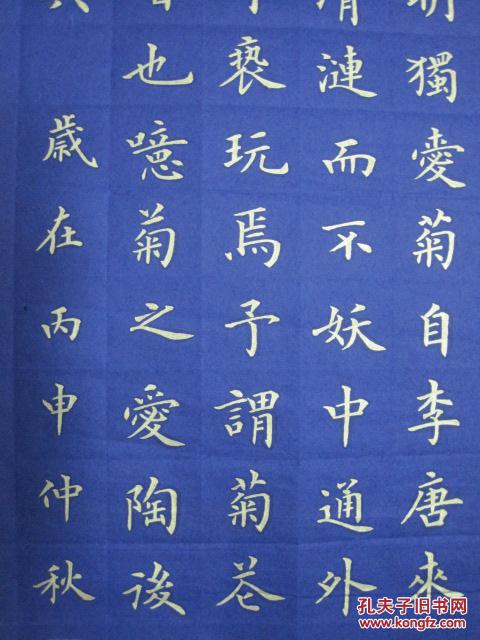 獨愛菊自李唐來
清漣而不妖中通外
褻玩焉予謂菊花
也噫菊之愛陶後
歲在丙申仲秋
孔夫子旧书网
www.kongfz.com